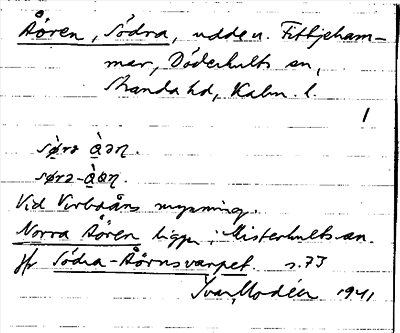 Åören, Södra, udde u. Fittjeham-
mar, Döderhults sn,
Stranda hd, Kalm. l.
1
sø̀rə ɑ̀ən.
sørə-ɑ̀ən.
Vid Virboåns mynning.
Norra Åören ligger i Misterhults sn.
jfr Södra-Åörnsvarpet. s. 73
Ivar Modéer 1941